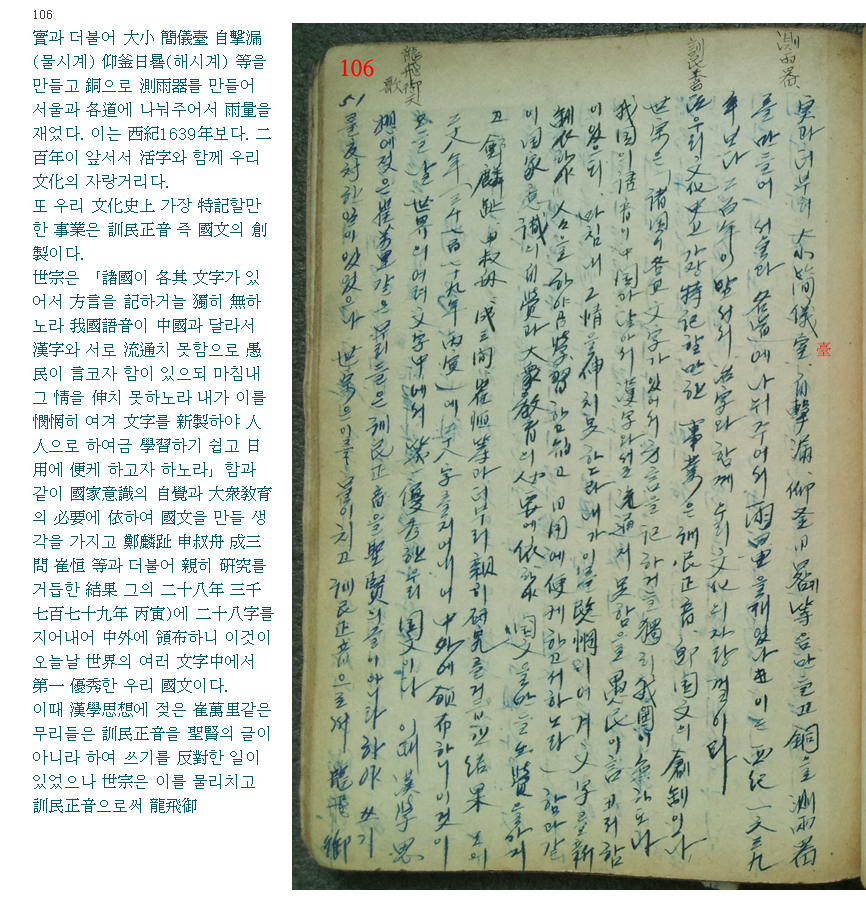 106
實과 더불어 大小 簡儀臺 自擊漏
(물시계) 仰釜日晷(해시계) 等을
만들고 銅으로 測雨器를 만들어
서울과 各道에 나눠주어서 雨量을
재었다. 이는 西紀1639年보다. 二
百年이 앞서서 活字와 함께 우리
文化의 자랑거리다.
또 우리 文化史上 가장 特記할만
한 事業은 訓民正音 즉 國文의 創
製이다.
世宗은 「諸國이 各其 文字가 있
어서 方言을 記하거늘 獨히 無하
노라 我國語音이 中國과 달라서
漢字와 서로 流通치 못함으로 愚
民이 言코자 함이 있으되 마침내
그 情을 伸치 못하노라 내가 이를
憫惘히 여겨 文字를 新製하야 人
人으로 하여금 學習하기 쉽고 日
用에 便케 하고자 하노라」함과
같이 國家意識의 自覺과 大衆敎育
의 必要에 依하여 國文을 만들 생
각을 가지고 鄭麟趾 申叔舟 成三
問 崔恒 等과 더불어 親히 硏究를
거듭한 結果 그의 二十八年 三千
七百七十九年 丙寅)에 二十八字를
지어내어 中外에 領布하니 이것이
오늘날 世界의 여러 文字中에서
第一 優秀한 우리 國文이다.
이때 漢學思想에 젖은 崔萬里같은
무리들은 訓民正音을 聖賢의 글이
아니라 하여 쓰기를 反對한 일이
있었으나 世宗은 이를 물리치고
訓民正音으로써 龍飛御
106
測雨器
訓民正音
龍飛御天歌
51
實과 더부러 大小 簡儀室 自擊漏 仰釜日晷 等을 만들고 銅으로 測雨器
臺
를 만들어 서울과 各道에 나눠주어서 雨量을 재었다 이는 西紀 一六三九
年보다 二百年이 앞서서 活字와 함께 우리 文化의 자랑껄이다
또 우리 文化史上 가장 特記할만한 事業은 訓民正音 卽 國文의 創制이다
世宗은 「諸國이 各其 文字가 있어서 方言을 記하거늘 獨히 我國이 無하노라
我國의 語音이 中國과 달라서 漢字와 서로 流通치 못함으로 愚民이 言코저 함
이 있으되 마침내 그 情을 伸치 못하노라 내가 이를 憫惘히 여겨 文字를 新
製하야 人人으로 하야금 學習하기 쉽고 日用에 便케 하고저 하노라」 함과 같
이 國家意識의 自覺과 大衆敎育의 必要에 依하야 國文을 만들 생각을 가지
고 鄭麟趾 申叔舟 成三問 崔恒 等과 더부러 親히 硏究를 거듭한 結果 그의
二十八年(三千七百七十九年 丙寅)에 二十八字를 지어내어 中外에 領布하니 이것이
오늘날 世界의 여러 文字中에서 第一 優秀한 우리 國文이다 이때 漢學思
想에 젖은 崔萬里같은 무리들은 訓民正音을 聖賢의 글이 아니라 하야 쓰기
를 反對한 일이 있었으나 世宗은 이를 물리치고 訓民正音으로써 龍飛御